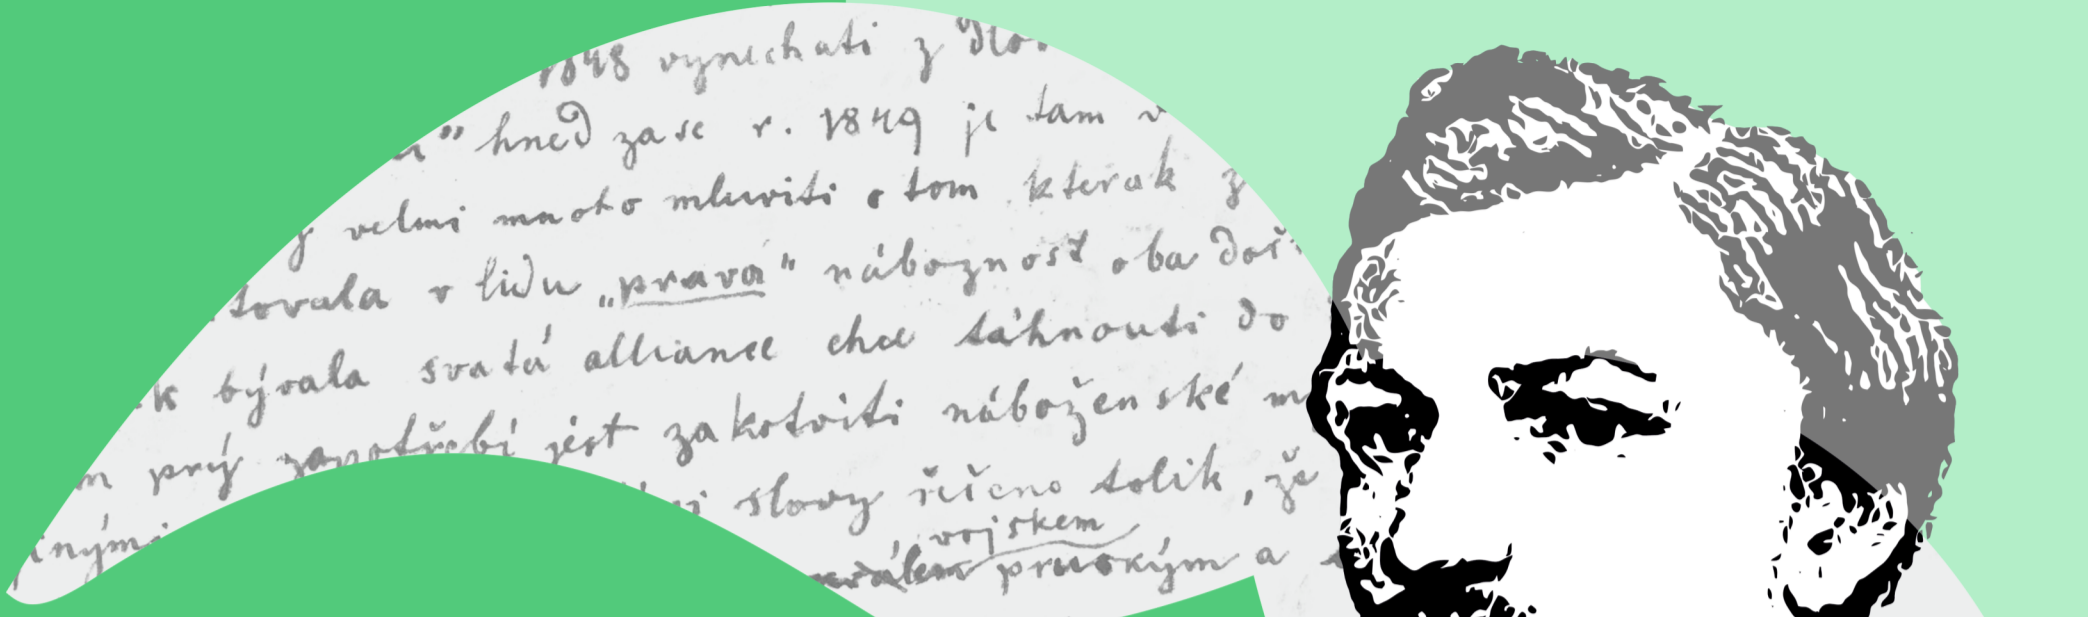 1848 vynechati z
hned zase r. 1849 je tam v
velmi mnoho mluviti o tom kterak z
tovala v lidu „pravá" náboznost oba
k bývala svatá alliance chce táhnouti do
prý zapotřebí jest zakotviti náboženské
slovy řečeno tolik, že
vojskem
králem pruským a